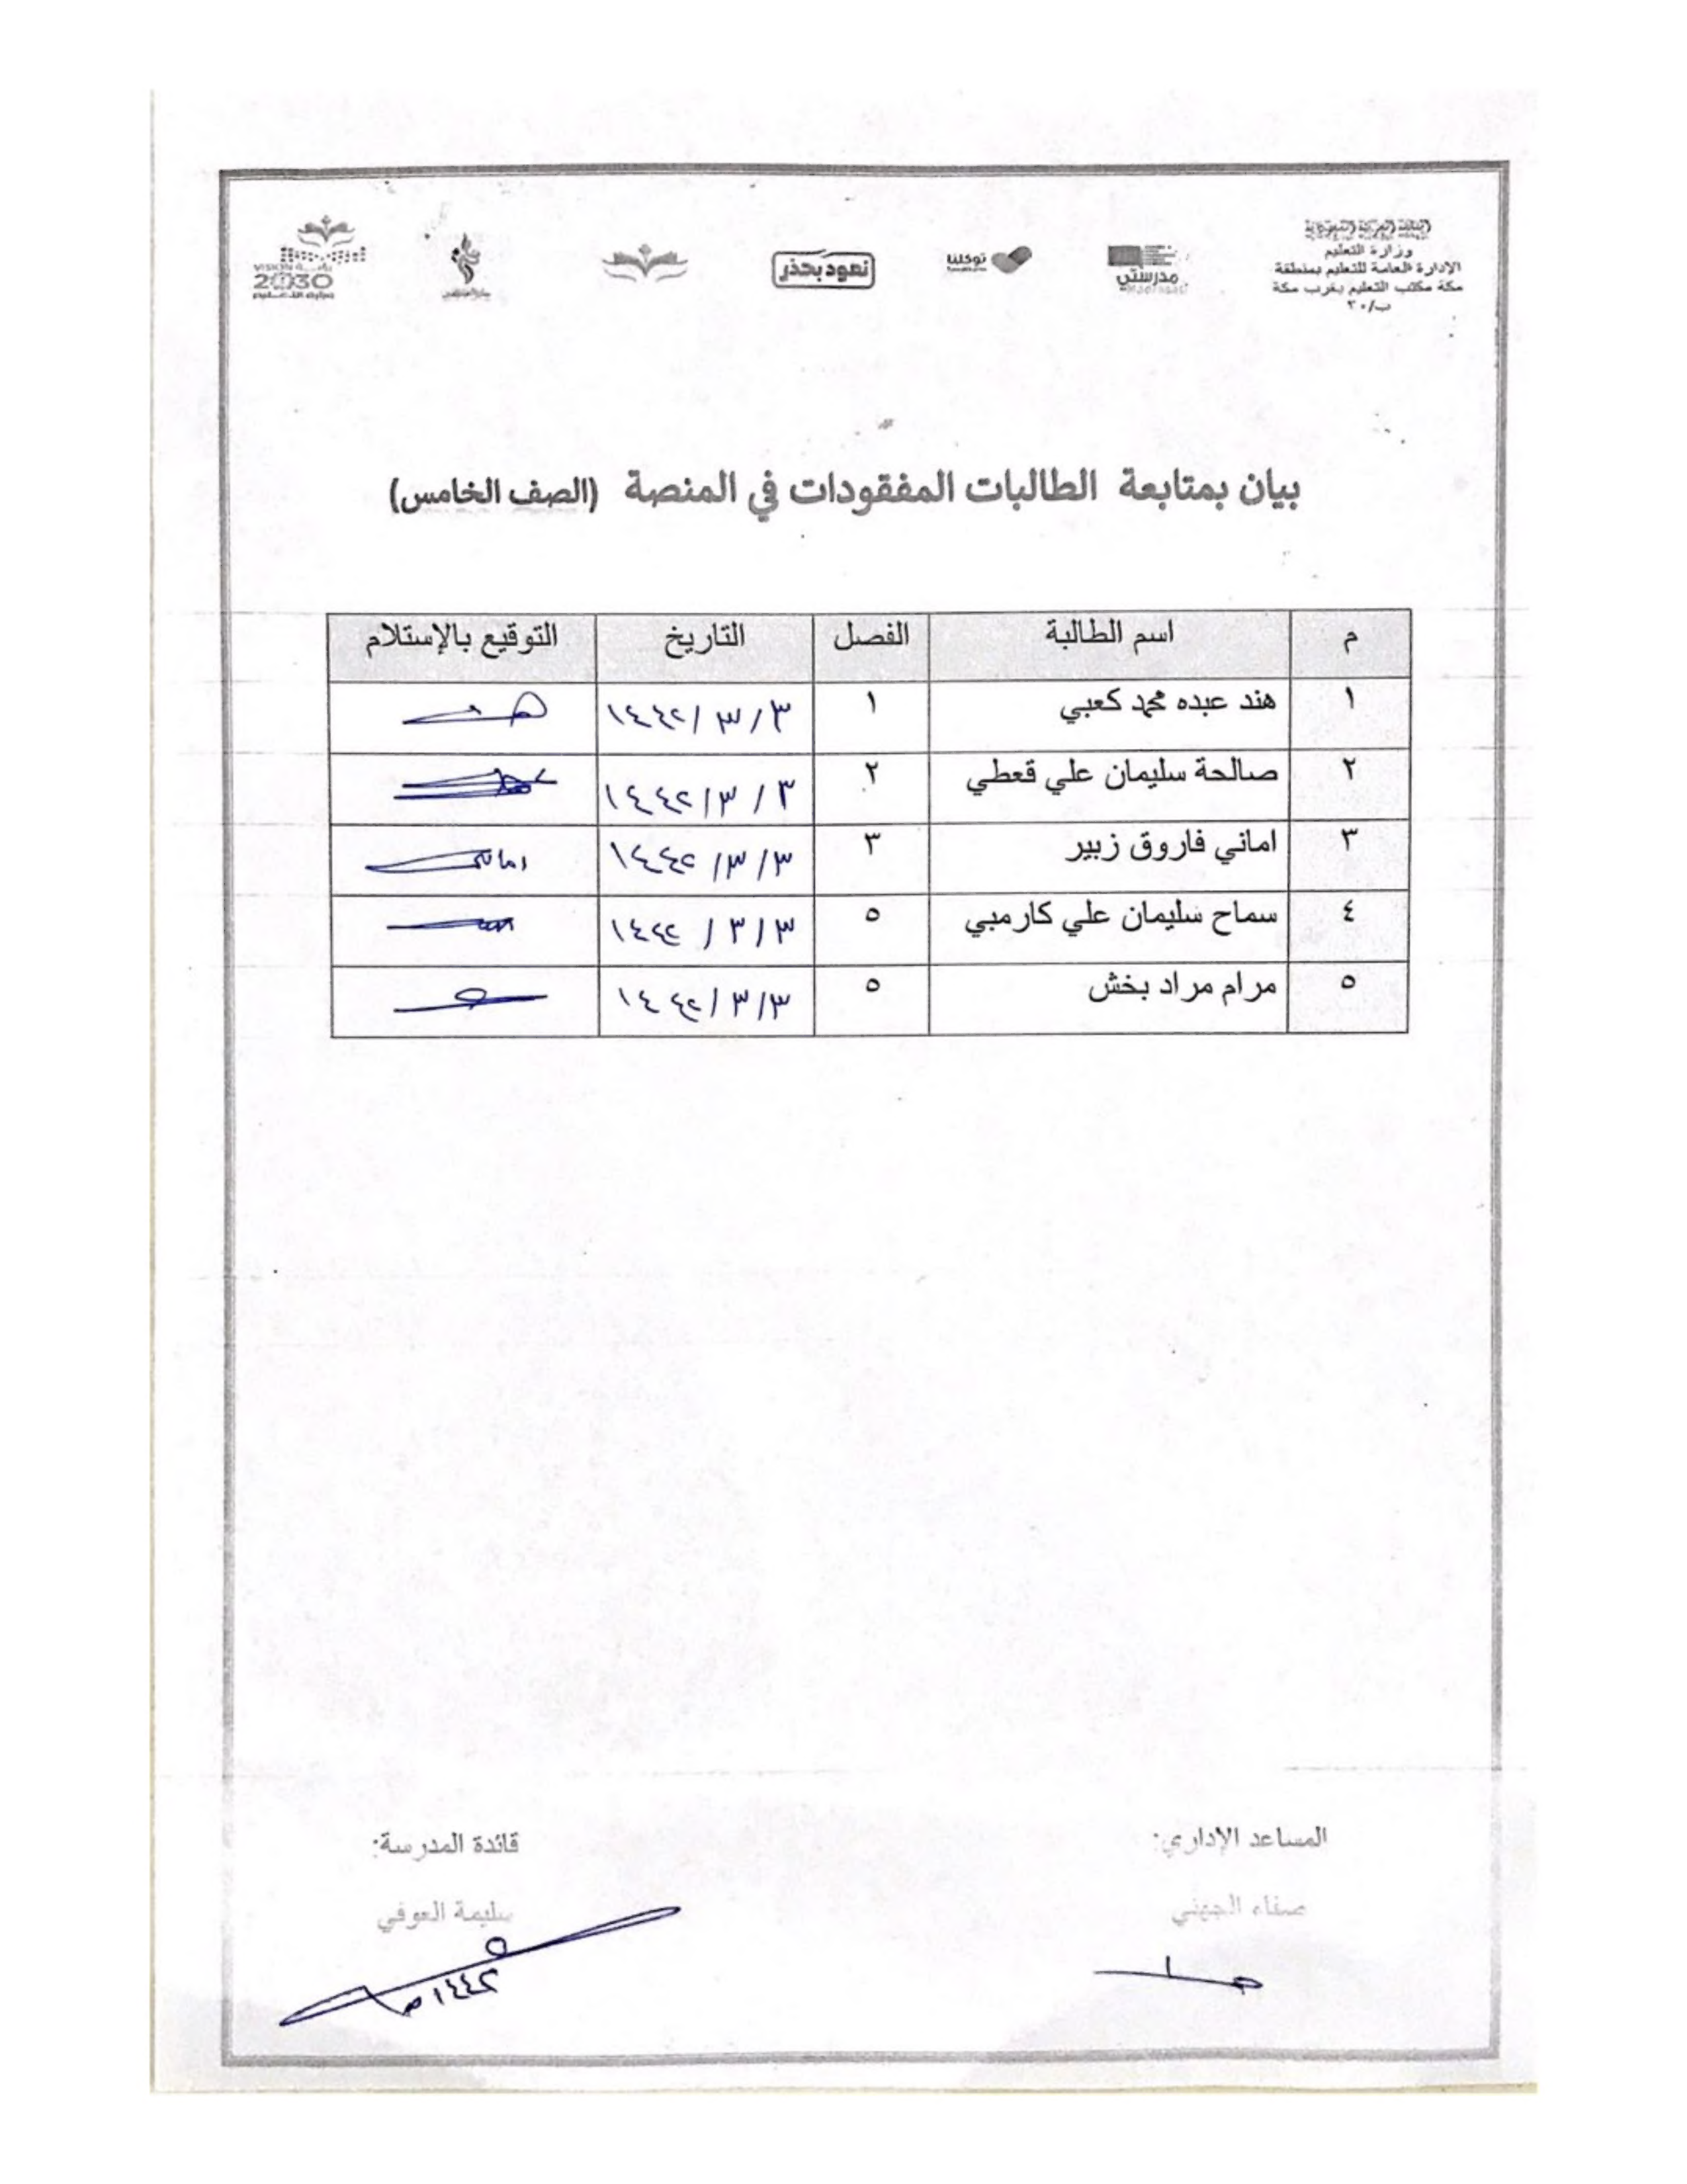 المملكة العربية السعودية
وزارة التعليم
الإدارة العامة للتعليم بمنطقة
مكة مكتب التعليم بغرب مكة
ب/٣٠
مدرستي
توكلنا
نعود بحذر
VISION رؤية
2030
بيان بمتابعة الطالبات المفقودات في المنصة (الصف الخامس)
م اسم الطالبة الفصل التاريخ التوقيع بالإستلام
١ هند عبده محمد كعبي ١ ٣/٣/١٤٤٢
٢ صالحة سليمان علي قعطي ٢ ٣/٣/١٤٤٢
٣ اماني فاروق زبير ٣ ٣/٣/١٤٤٢ اماني
٤ سماح سليمان علي كارمبي ٥ ٣/٣/١٤٤٢
٥ مرام مراد بخش ٥ ٣/٣/١٤٤٢
المساعد الإداري: قائدة المدرسة:
صفاء الجهني سليمة العوفي
١٤٤٢هـ